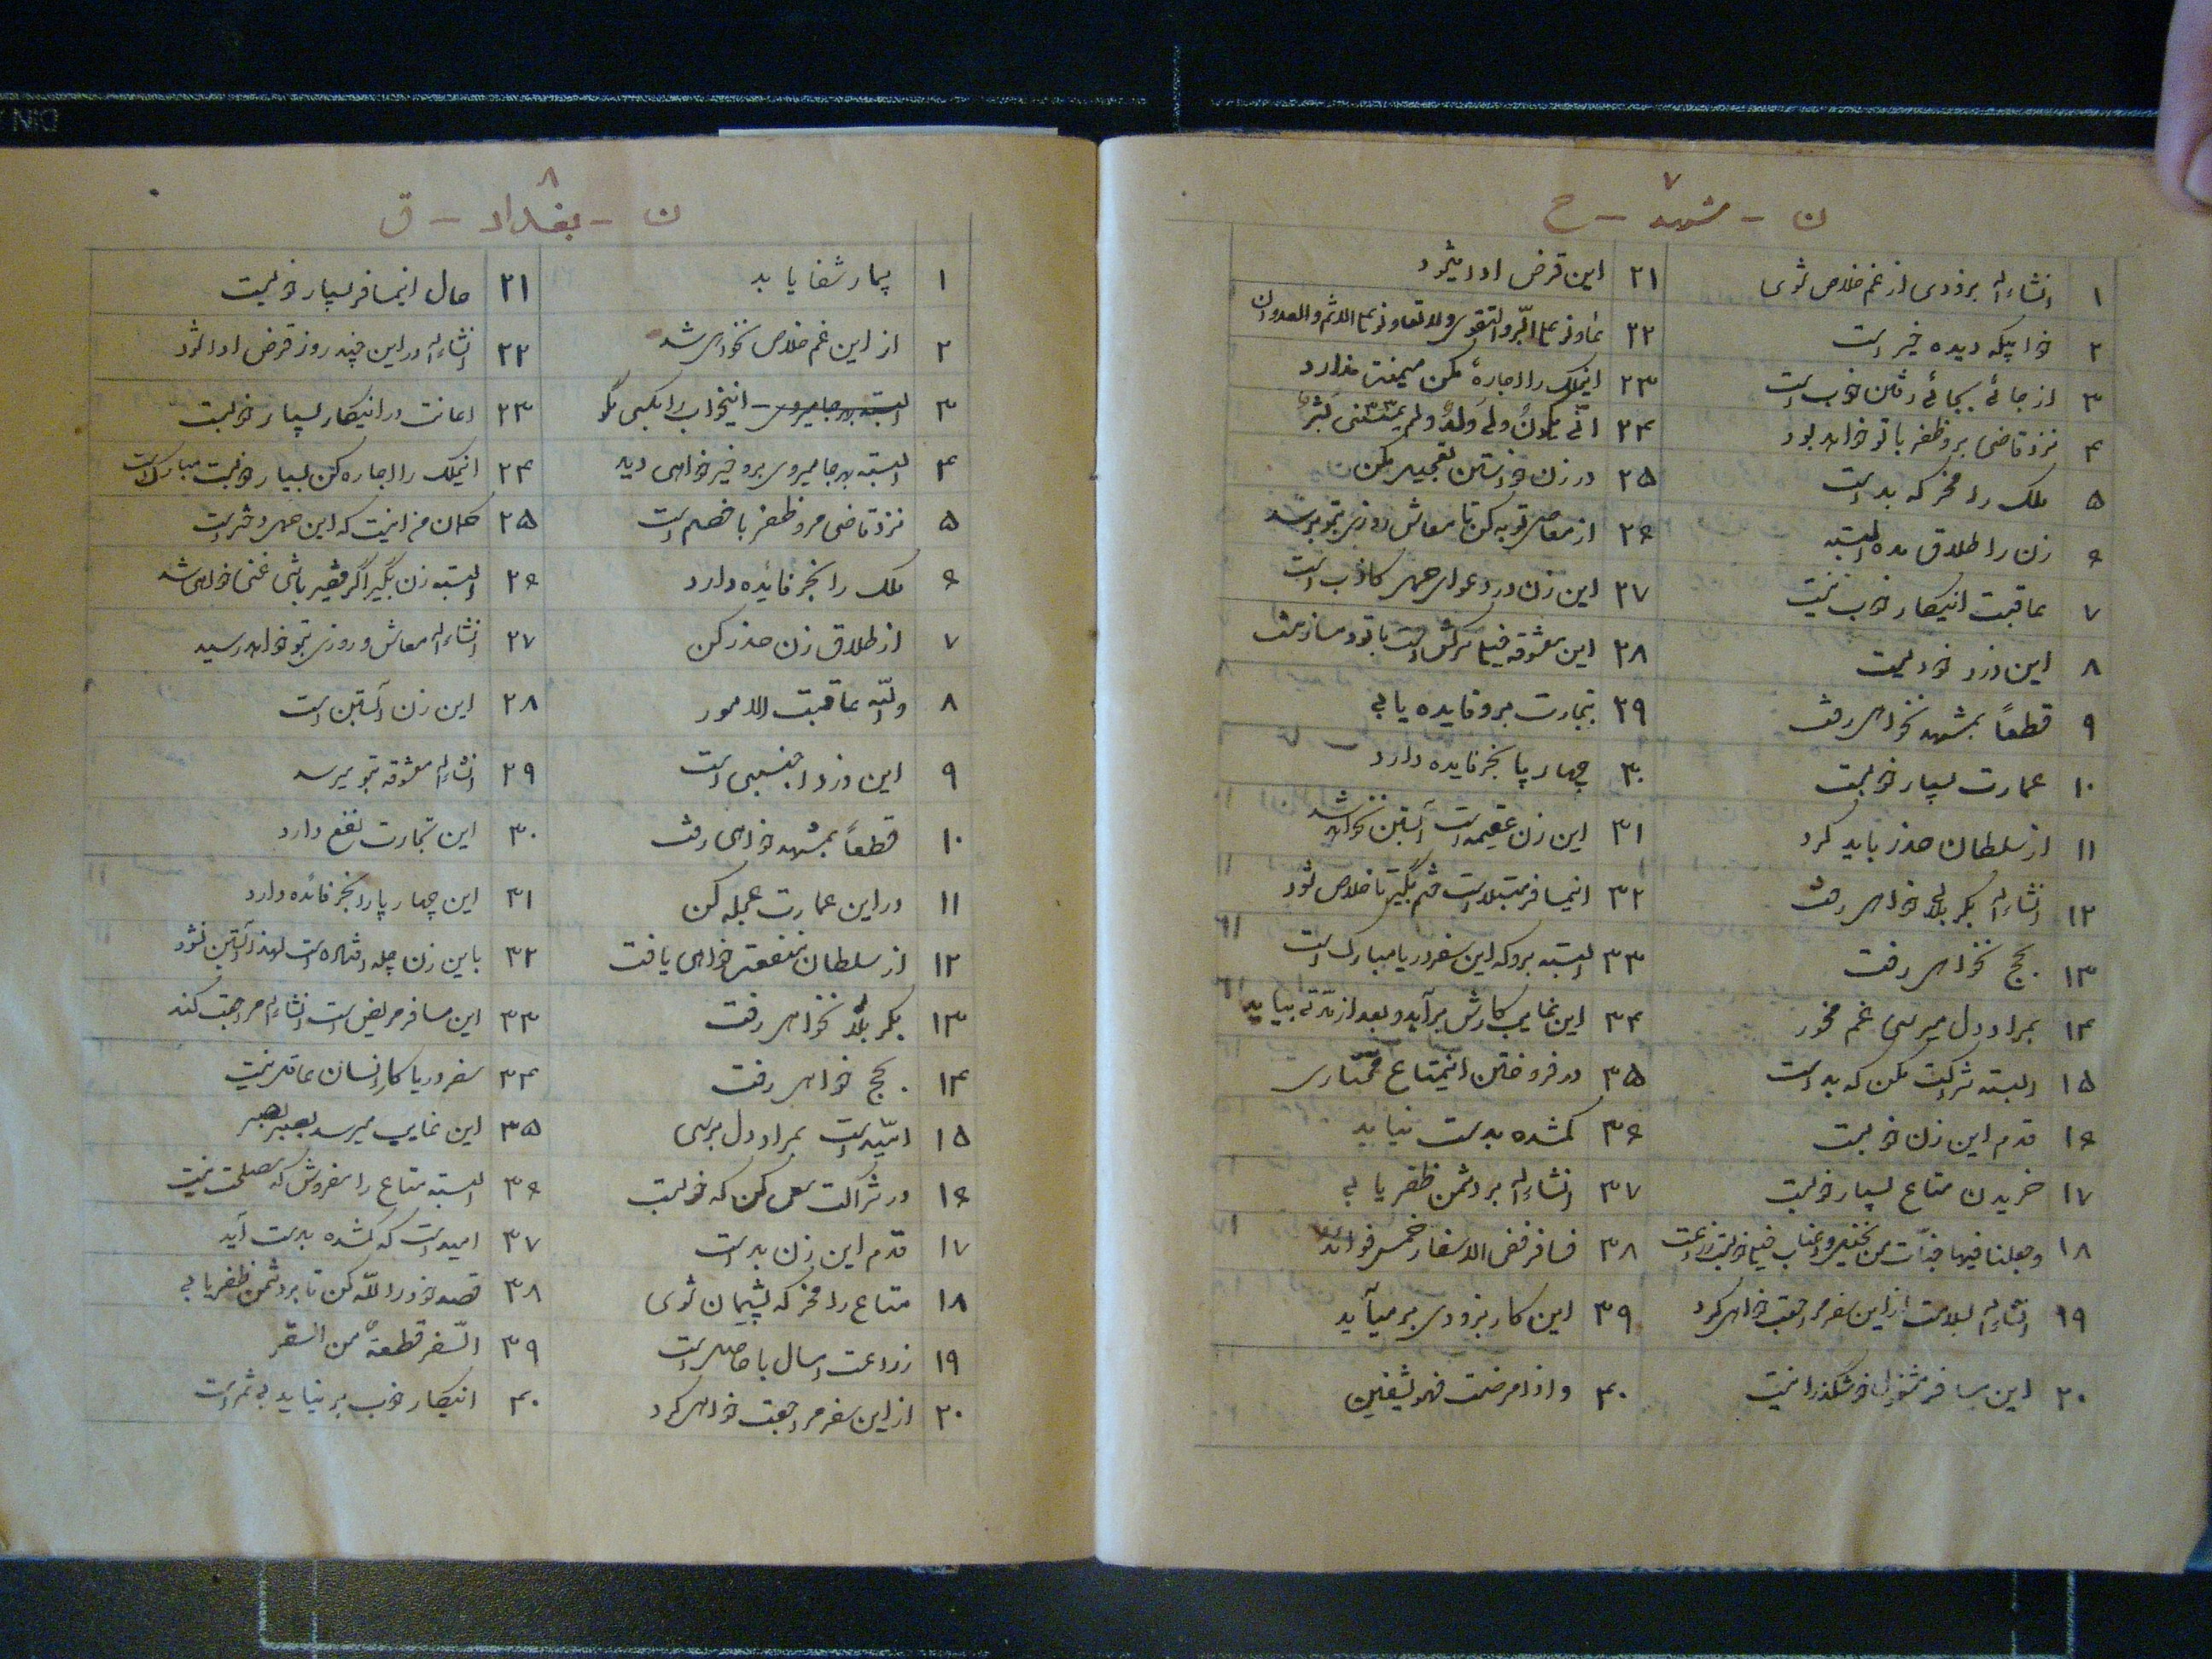 ۷
ن - مشهد - ح
۱ انشاءاله بزودی از غم خلاص شوی
۲ خوابیکه دیده خیر است
۳ از جائی بجائی رفتن خوب است
۴ نزد قاضی برو ظفر با تو خواهد بود
۵ ملک را مخر که بد است
۶ زن را طلاق مده البته
۷ عاقبت اینکار خوب نیست
۸ این دزد
۹ قطعاً بمشهد نخواهی رفت
۱۰ عمارت بسیار خوبست
۱۱ از سلطان حذر باید کرد
۱۲ انشاءاله بکربلا خواهی رفت
۱۳ بحج نخواهی رفت
۱۴ بمراد دل میرسی غم مخور
۱۵ البته شراکت مکن که بد است
۱۶ قدم این زن خوبست
۱۷ خریدن متاع بسیار خوبست
۱۸ وجعلنا فیها جنّات من نخیل و اعناب
۱۹ انشاءاله بسلامت از این سفر مراجعت خواهی کرد
۲۰ این مسافر مشغول خوشگذرانیست
۲۱ این قرض ادا میشود
۲۲ تعاونوا علی البّر والتقوی ولا تعاونوا علی الاثم والعدوان
۲۳ اینملک را اجاره مکن میمنت ندارد
۲۴ انّی یکونُ ولی وَلدٌ ولم یمسسنی بَشَر
۲۵ در زن خواستن تعجیل مکن
۲۶ از معاصی توبه کن تا معاش روزی بتو برسد
۲۷ این زن در دعوای مهر کاذب است
۲۸ این معشوقه سرکش است با تو
۲۹ بتجارت برو فایده یابی
۳۰ چهار پا بخر فایده دارد
۳۱ این زن عقیمه است آبستن نخواهد شد
۳۲ اینمسافر مبتلا است ختم بگیر تا خلاص شود
۳۳ البته برو که این سفر دریا مبارک است
۳۴ این غایب کارش برآید و بعد از مدّتی بیاید
۳۵ در فروختن اینمتاع مختاری
۳۶ گمشده بدست نیاید
۳۷ انشاءاله بر دشمن ظفر یابی
۳۸ فسافر ففی الاسفار خمس فوائد
۳۹ این کار بزودی برمیآید
۴۰ واذا مرضت فهو یشفین
۸
ن - بغداد - ق
۱ بیمار شفا یابد
۲ از این غم خلاص نخواهی شد
۳ البته بهر جا میروی - اینخواب را بکسی مگو
۴ البته بهر جا میروی برو خیر خواهی دید
۵ نزد قاضی مرو ظفر با خصم است
۶ ملک را بخر فائده دارد
۷ از طلاق زن حذر کن
۸ ولله عاقبت الامور
۹ این دزد اجنبی است
۱۰ قطعاً بمشهد خواهی رفت
۱۱ در این عمارت عجله کن
۱۲ از سلطان منفعت خواهی یافت
۱۳ بکربلا نخواهی رفت
۱۴ بحج خواهی رفت
۱۵ امیّد است بمراد دل برسی
۱۶ در شراکت سعی کن که خوبست
۱۷ قدم این زن بد است
۱۸ متاع را مخر که پشیمان شوی
۱۹ زراعت امسال با حاصل است
۲۰ از این سفر مراجعت خواهی کرد
۲۱ حال اینمسافر بسیار خوبست
۲۲ انشاءاله در این چند روز قرض ادا شود
۲۳ اعانت در اینکار بسیار خوبست
۲۴ اینملک را اجاره کن بسیار خوبست مبارک است
۲۵ گمان من اینست که این حمل دختر است
۲۶ البته زن بگیر اگر فقیر باشی غنی خواهی شد
۲۷ انشاءاله معاش و روزی بتو خواهد رسید
۲۸ این زن آبستن است
۲۹ انشاءاله معشوقه بتو میرسد
۳۰ این تجارت نفع دارد
۳۱ این چهار پا را بخر فائده دارد
۳۲ باین زن چله افتاده است لهذا آبستن نشود
۳۳ این مسافر مریض است انشاءاله مراجعت کند
۳۴ سفر دریا کار انسان عاقل نیست
۳۵ این غایب میرسد
۳۶ البته متاع را مفروش که مصلحت نیست
۳۷ امید است که گمشده بدست آید
۳۸ قصد خود را للّه کن تا بر دشمن ظفر یابی
۳۹ السّفر قطعةٌ من السقر
۴۰ اینکار خوب بر نیاید بی ثمر است